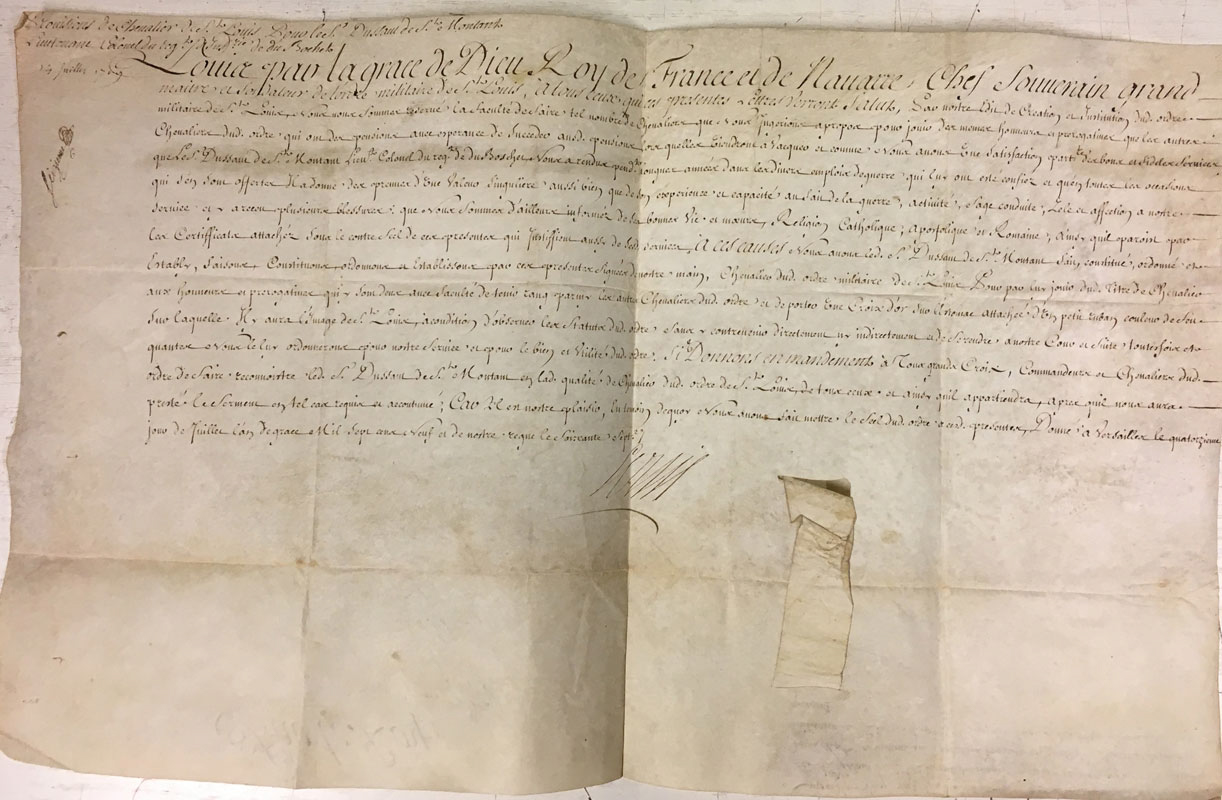 Provisions de Chevalier de St. Louis Pour le Sr. Dussau de Ste. Montant
Lieutenant Colonel du Reg.
14 Juillet 1709
Louis par la grace de Dieu Roy de France et de Navarre, Chef Souverain grand
maitre et fondateur de l'ordre militaire de St. Louis, a tous ceux qui ces presentes Lettres verront Salut, Par nostre Edit de Creation et Institution dud. ordre
militaire de St. Louis, Nous nous sommes reservé la faculté de faire tel nombre de Chevaliers que nous jugerions a propos pour jouir des mesmes honneurs et prerogatives que les autres
Chevaliers dud. ordre qui ont des pensions avec esperance de succeder aud. pensions lors quelles viendront a vacquer et comme Nous avons Une Satisfaction partre. des bons et fideles services
que le Sr. Dussau de Ste. Montant Lieut. Colonel du reg. de du Boschet Nous a rendus pend. longues années dans les divers emplois de guerre qui luy ont esté confiez et qu'en toutes les occasions
qui s'en sont offertes Il a donné des preuves d'Une Valeur singuliere aussi bien que de son experience et capacité au fait de la guerre, activité, sage conduite, zele et affection a nostre
service et y a receu plusieurs blessures; que Nous sommes d'ailleurs informez de ses bonnes Vie et moeurs, Religion Catholique, apostolique et Romaine; ainsy qu'il paroist par
les Certifficats attachez sous le contre scel de ces presentes qui Justifient aussy de ses services A ces causes Nous avons led. Sr. Dussau de Ste. Montant fait, constitué, ordonné et
Estably, faisons, Constituons, ordonnons et Etablissons par ces presentes signées de nostre main, Chevalier dud. ordre militaire de St. Louis Pour par luy jouir dud. titre de Chevalier
aux honneurs et prerogatives qui y sont deues avec faculté de tenir rang parmy les autres Chevaliers dud. ordre et de porter Une Croix d'or sur l'estomac attachée d'Un petit ruban couleur de feu
sur laquelle Il y aura l'Image de St. Louis, a condition d'observer les Statuts dud. ordre sans y contrevenir directement ny indirectement et de se rendre a nostre Cour et suite toutesfois et
quantes Nous le luy ordonnerons pour nostre Service et pour le bien et Utilité dud. ordre. Si Donnons en mandement a Tous grands Croix, Commandeurs et Chevaliers dud.
ordre de faire reconnoistre led. Sr. Dussau de Ste. Montant en lad. qualité de Chevalier dud. ordre de St. Louis, de tous ceux et ainsy qu'il appartiendra, apres qu'il nous aura
presté le Serment en tel cas requis et accoutumé; Car tel est nostre plaisir, En temoin dequoy Nous avons fait mettre le Scel dud. ordre a cesd. presentes, Donné a Versailles le quatorzieme
jour de Juillet l'an de grace Mil sept cens Neuf et de nostre regne le soixante Sept.
Louis